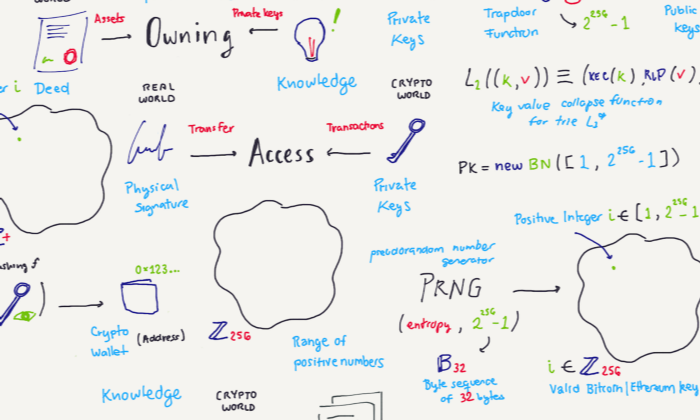 Assets
Owning
Private keys
!
Private
Keys
Trapdoor
Function
2^256-1
Public
keys
Deed
Knowledge
REAL
WORLD
CRYPTO
WORLD
L₂((k,v)) ≡ (KEC(k), RLP(v)
Key value collapse function
for trie L₂*
Transfer
Access
Transactions
Physical
Signature
Private
Keys
PK = new BN([1, 2^256-1])
Positive Integer i ∈ [1, 2^256-1
pseudorandom number
generator
PRNG
(entropy, 2^256-1)
B₃₂
Byte sequence
of 32 bytes
0x123...
Crypto
Wallet
(Address)
ℤ256
Range of
positive numbers
i ∈ ℤ256
Valid Bitcoin/Ethereum key
Knowledge
CRYPTO
WORLD